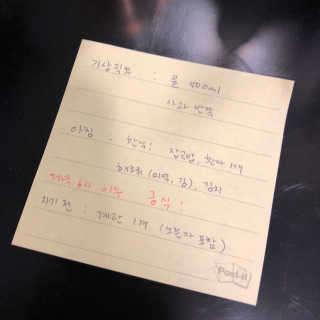 기상직후 : 물 400ml
사과 반쪽
아침 - 한식 : 잡곡밥, 현미 1/2
해조류 (미역, 김), 김치
저녁 6시 이후 금식!
자기 전 : 계란 1개 (노른자 포함)
Post-it